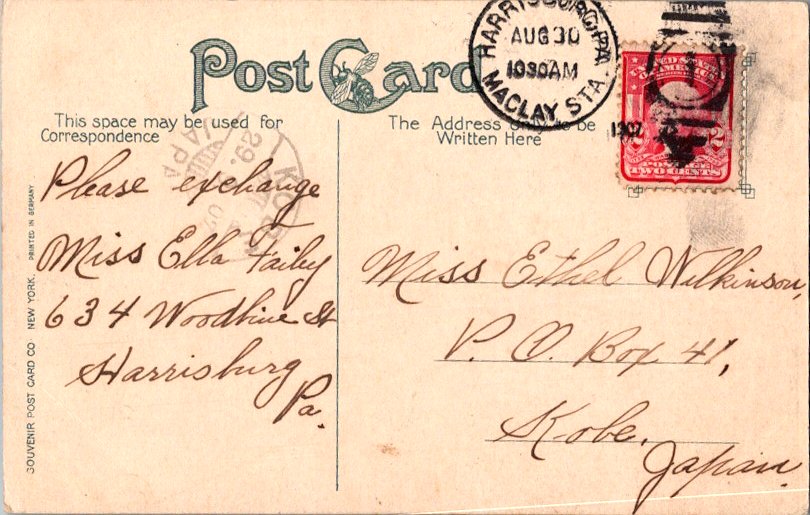 Post Card
This space may be used for
Correspondence
The Address only to be
Written Here
HARRISBURG, PA.
AUG 30
1030AM
1907
MACLAY STA.
UNITED STATES
OF AMERICA
2 2
POSTAGE
TWO CENTS
29.
JAPAN
Please exchange
Miss Ella Failey
634 Woodbine St
Harrisburg
Pa.
Miss Ethel Wilkinson,
P. O. Box 41,
Kobe,
Japan.
SOUVENIR POST CARD CO. NEW YORK. PRINTED IN GERMANY